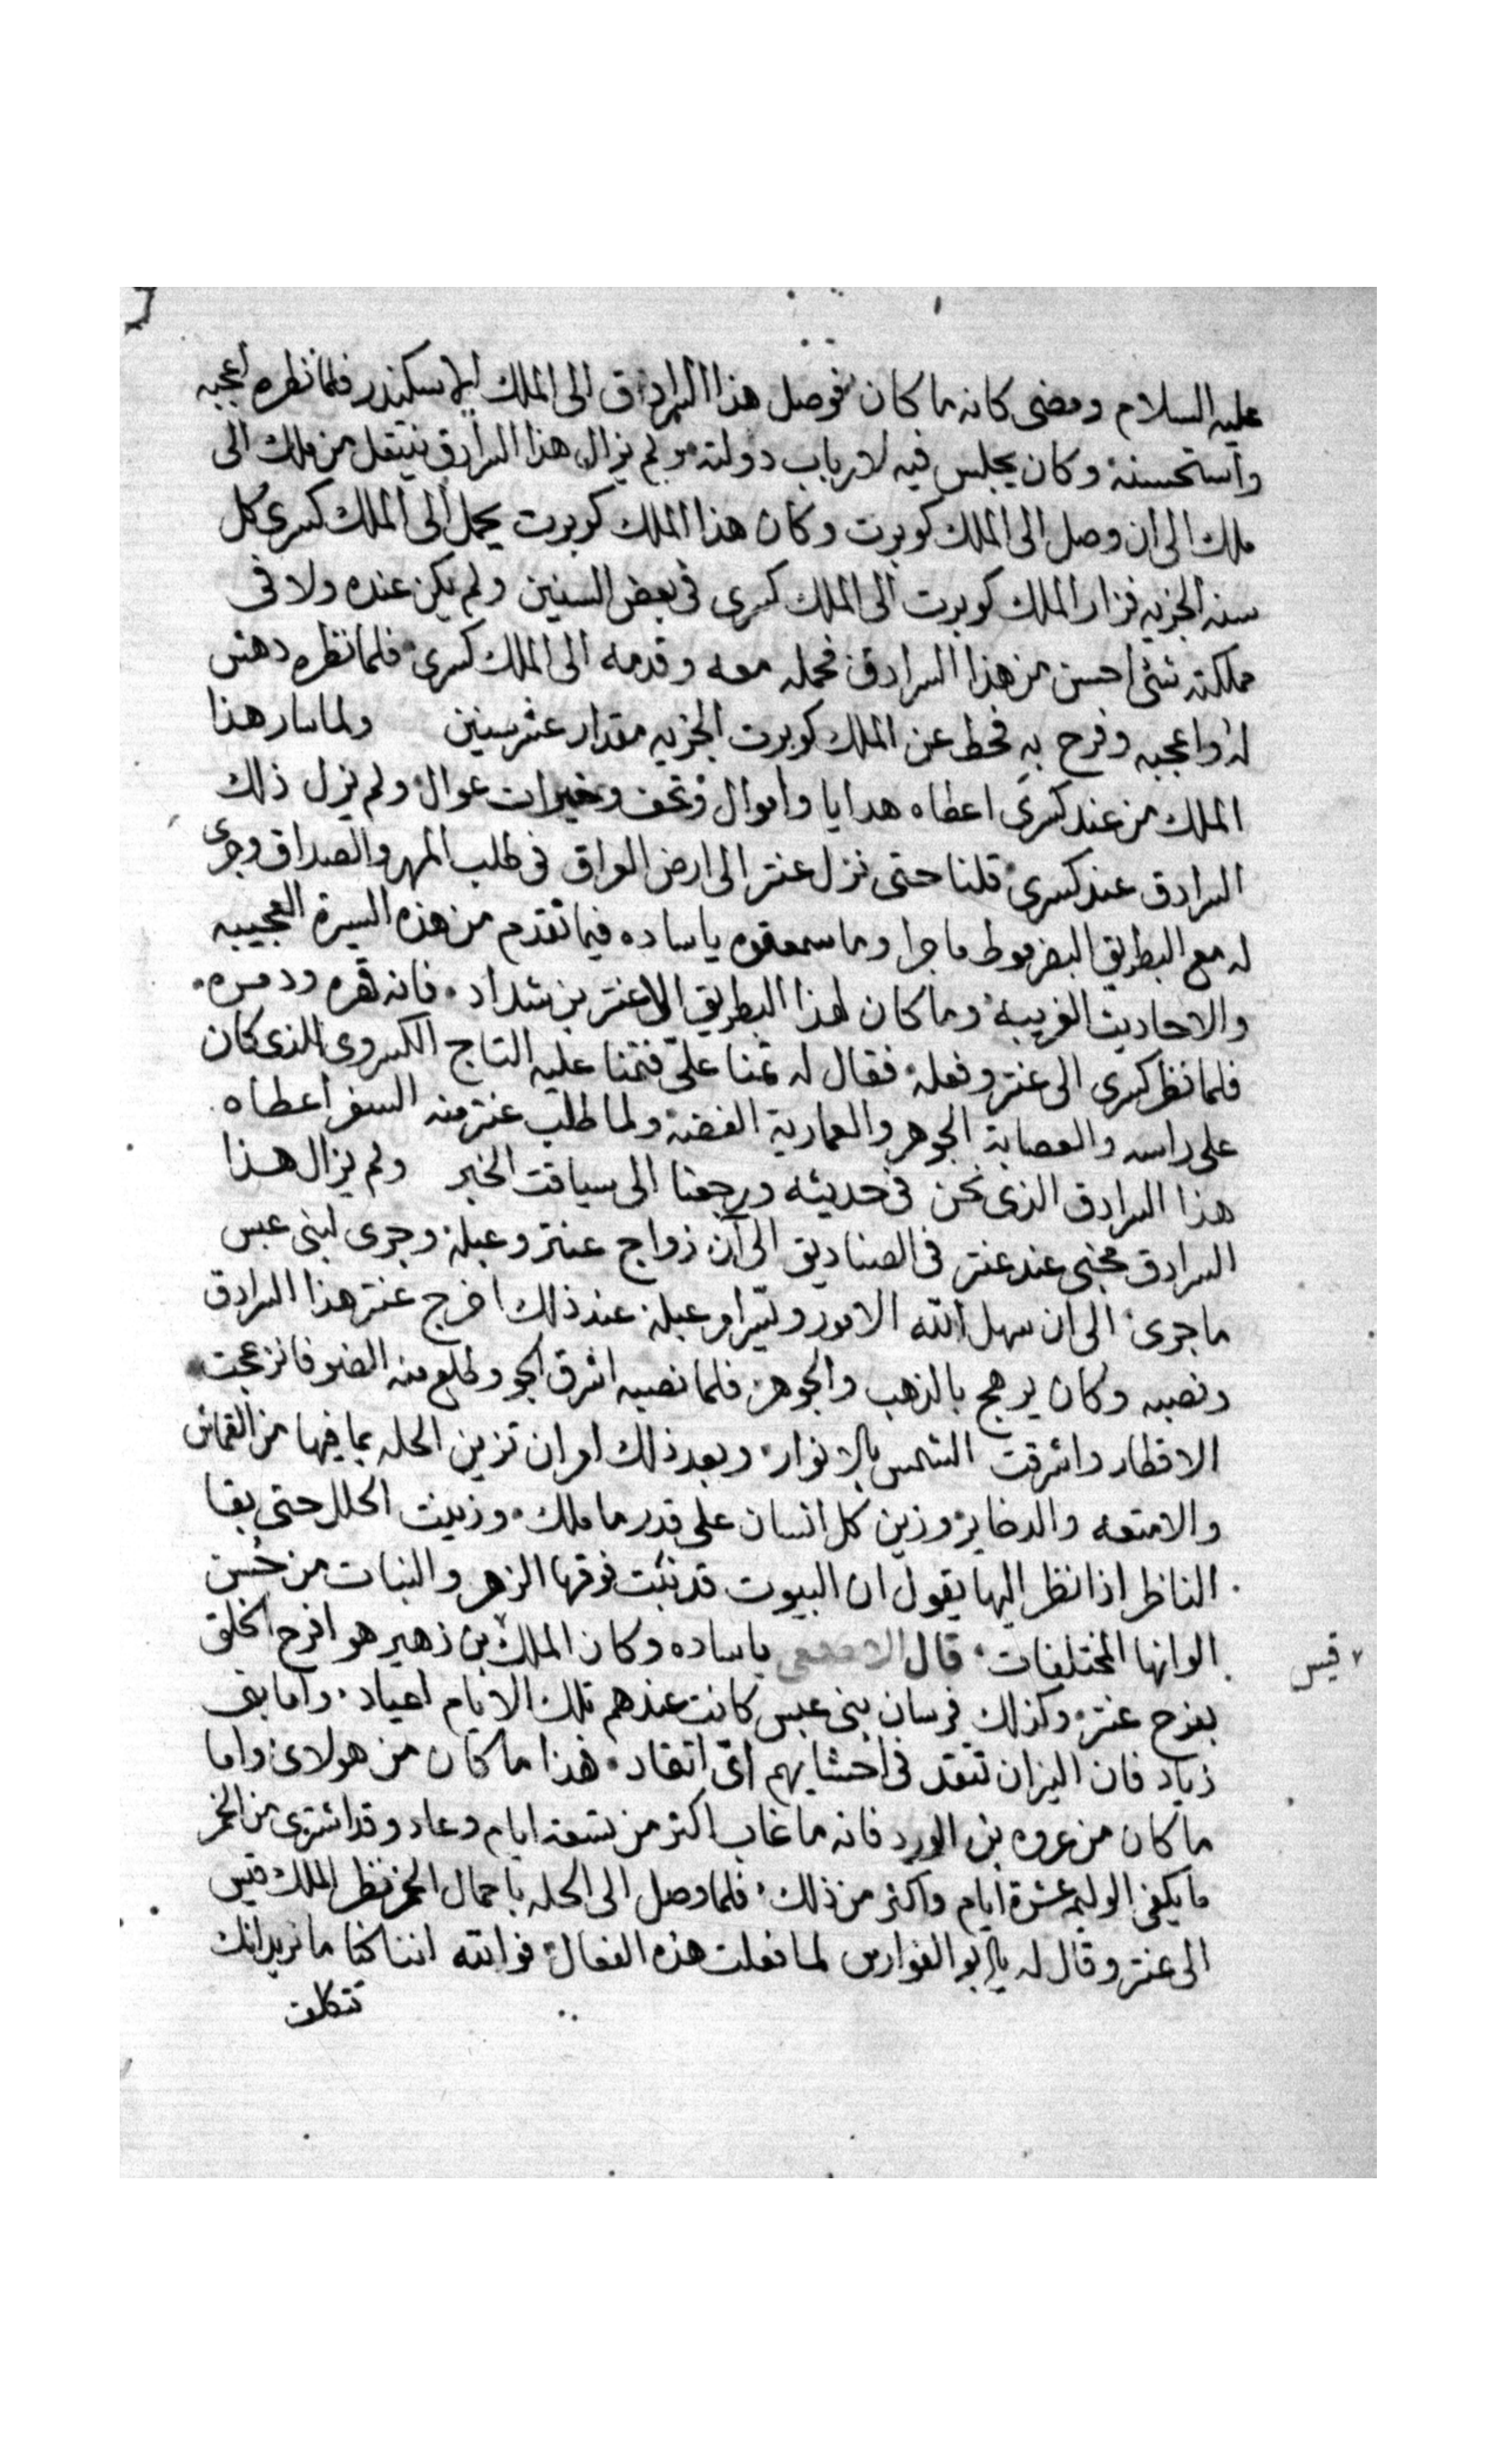 عليه السلام ومضى كانه ما كان فوصل هذا السرادق الى الملك الاسكندر فلما نظره اعجبه
واستحسنه وكان يجلس فيه لارباب دولته ولم يزال هذا السرادق ينتقل من ملك الى
ملك الى ان وصل الى الملك كوبرت وكان هذا الملك كوبرت يحمل الى الملك كسرى كل
سنه الجزيه فزار الملك كوبرت الى الملك كسرى فى بعض السنين ولم يكن عنده ولا فى
مملكته شئ احسن من هذا السرادق فحمله معه وقدمه الى الملك كسرى فلما نظره دهش
له واعجبه وفرح به فحط عن الملك كوبرت الجزيه مقدار عشر سنين ولما سار هذا
الملك من عند كسرى اعطاه هدايا واموال وتحف وخيرات عوال ولم يزل ذلك
السرادق عند كسرى قلنا حتى نزل عنتر الى ارض العراق فى طلب المهر والصداق وجرى
له مع البطريق البضرموط ما جرا وما سمعتوه ياساده فيما تقدم من هذه السيرة العجيبه
والاحاديث الغريبة وما كان لهذا البطريق الا عنتر بن شداد فانه قهره ودمره
فلما نظر كسرى الى عنتر وفعله فقال له تمنا علىّ فتمنا عليه التاج الكسروى الذى كان
على راسه والعصابة الجوهر والعمارية الفضه ولما طلب عنتر منه السفر اعطاه
هذا السرادق الذى نحن فى حديثه ورجعنا الى سياقت الخبر ولم يزال هذا
السرادق مخبى عند عنتر فى الصناديق الى آن زواج عنتر وعبلة وجرى لبنى عبس
ما جرى الى ان سهل الله الامور وتيسر امر عبلة عند ذلك اخرج عنتر هذا السرادق
ونصبه وكان يرهج بالذهب والجوهر فلما نصبه اشرق الجو وطلع منه الضو فانزعجت
الاقطار واشرقت الشمس بالانوار وبعد ذلك امر ان تزين الحله بما فيها من القماش
والامتعه والدخاير وزين كل انسان على قدر ما ملك وزينت الحلل حتى بقا
الناظر اذا نظر اليها يقول ان البيوت قد نبتت فوقها الزهر والنبات من حُسن
الوانها المختلفات قال الاصمعى ياساده وكان الملك بن زهير هو افرح الخلق
قيس
بفرح عنتر وكذلك فرسان بنى عبس كانت عندهم تلك الايام اعياد واما بنى
زياد فان النيران تتقد فى احشايهم اىّ اتقاد هذا ما كان من هولاى واما
ما كان من عروه بن الورد فانه ما غاب اكتر من تسعة ايام وعاد وقد اشترى من الخمر
ما يكفى الوليمه عشرة ايام واكثر من ذلك فلما وصل الى الحله باحمال الخمر نظر الملك قيس
الى عنتر وقال له يا ابو الفوارس لما فعلت هذه الفعال فوالله اننا كنا ما نريد انك
تتكلف